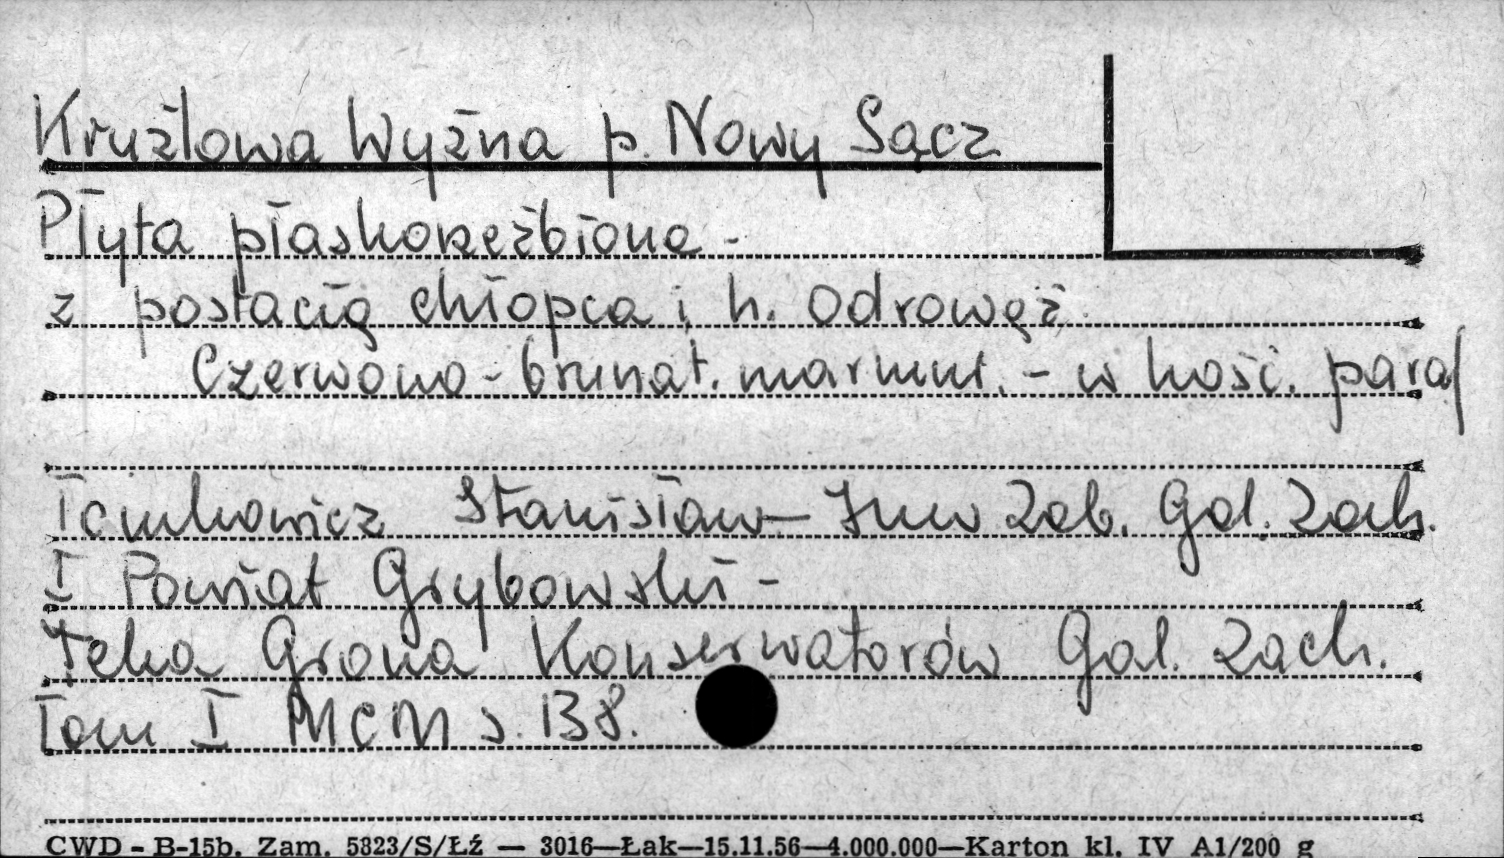 Krużlowa Wyżna p. Nowy Sącz
Płyta płaskorzeźbiona -
z postacią chłopca i h. Odrowąż.
Czerwono-brunat. marmur. - w kość. paraf
Tomkowicz Stanisław - Inw Zab. Gal. Zach.
I Powiat Grybowski -
Teka Grona Konserwatorów Gal. Zach.
Tom I MCM s. 138.
CWD - B-15b. Zam. 5823/S/Łź — 3016—Łak—15.11.56—4.000.000—Karton kl. IV A1/200 g